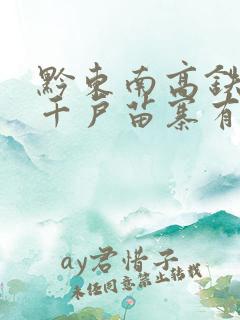 黔东南高铁
千户苗寨有
ay君惜子
未经同意禁止转载